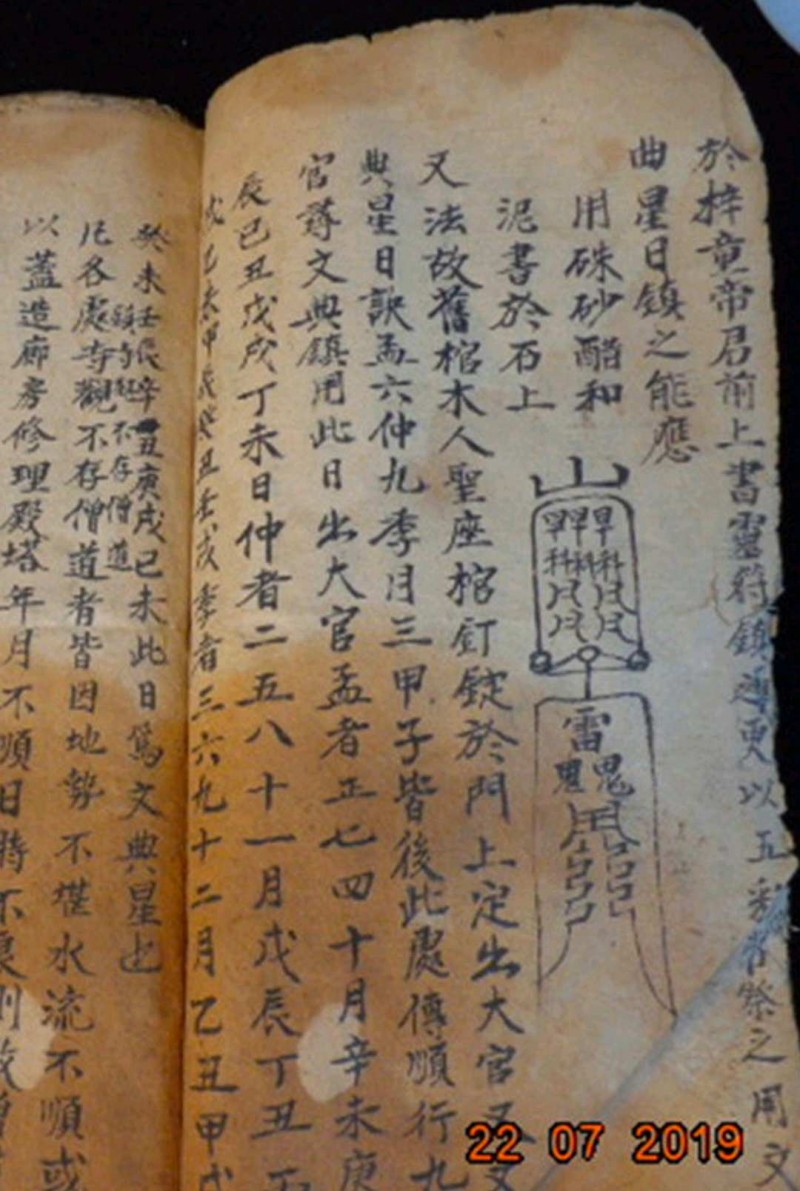 於梓童帝君前上書靈符鎮邊更以五彩祭之用文
曲星日鎮之能應
用硃砂醋和
泥書於石上
山
罡罡罡
科科科
月月
月月
雷
鬼鬼
又法故舊棺木人聖座棺釘錠於門上定出大官又文
典星日訣孟六仲九季月三甲子皆後此處傳順行九
官尋文典鎮用此日出大官孟者正七四十月辛未庚
辰己丑戊戌丁未日仲者二五八十一月戊辰丁丑
戌乙未甲辰癸丑壬戌季者三六九十二月乙丑甲戌
癸未壬辰辛丑庚戌己未此日為文典星也
鎮寺觀不存僧道
凡各處寺觀不存僧道者皆因地勢不堪水流不順或
以蓋造廊房修理殿塔年月不順日時不良則
22 07 2019